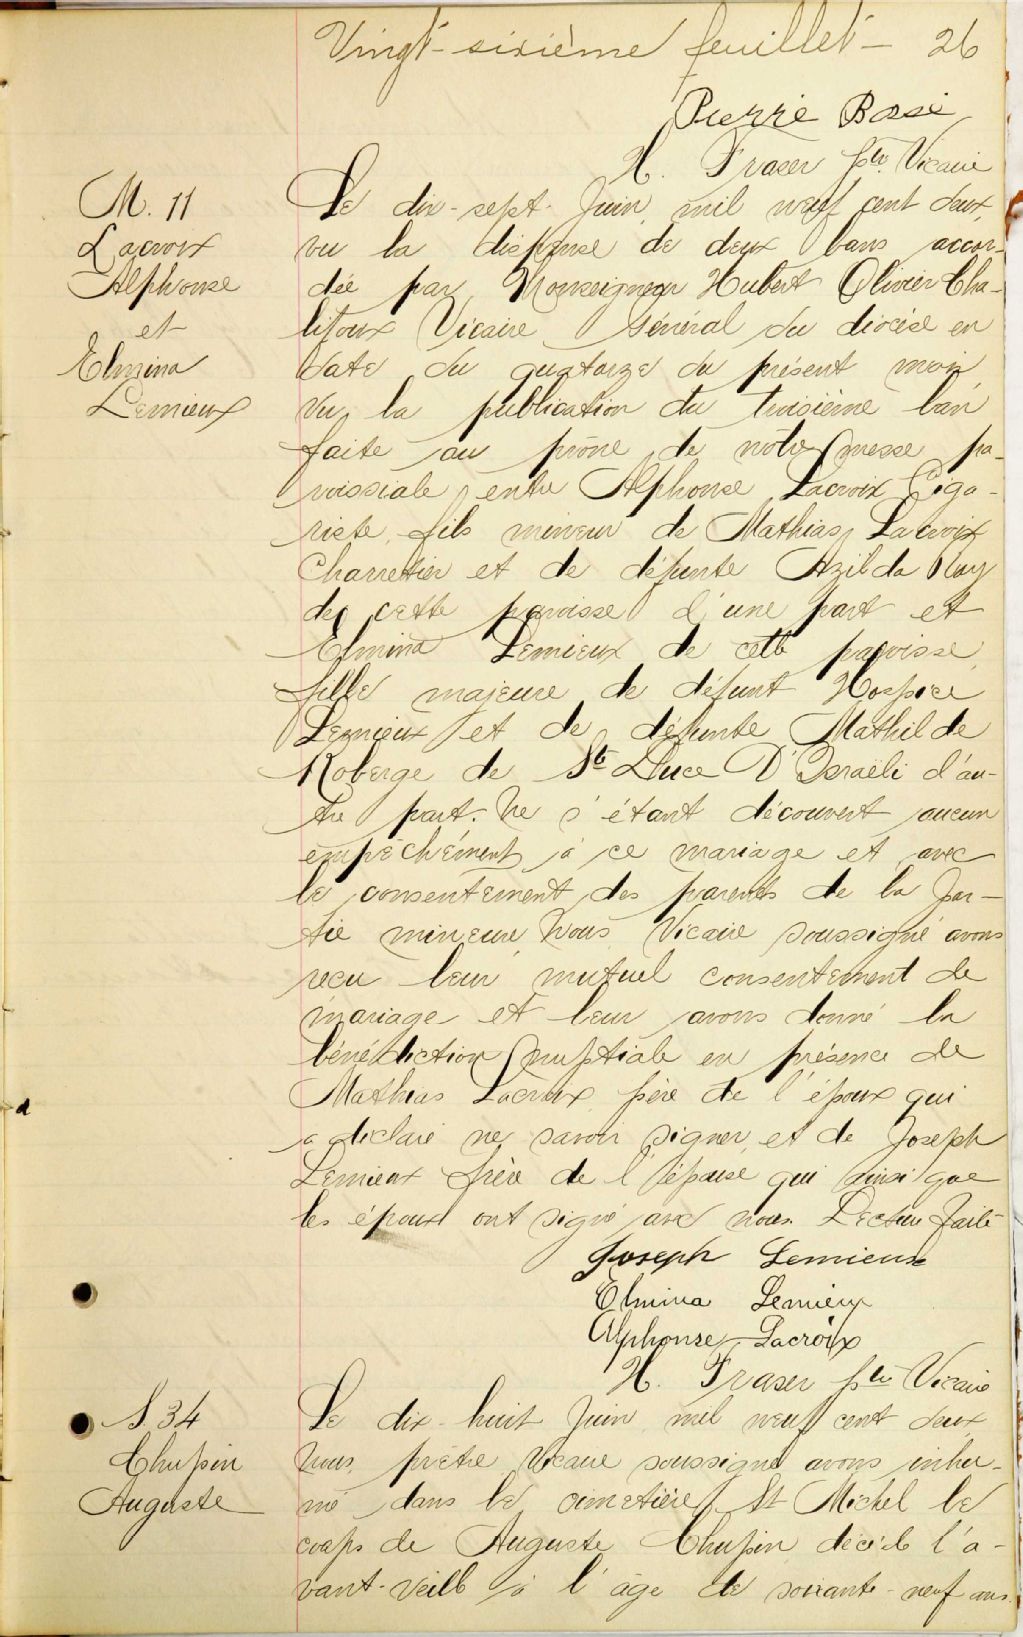 Vingt-sixième feuillet — 26
Pierre Bossé
H. Fraser ptre Vicaire
M. 11
Lacroix
Alphonse
et
Elmina
Lemieux
Le dix-sept Juin, mil neuf cent deux,
vu la dispense de deux bans accor-
dée par Monseigneur Hubert Olivier Cha-
lifoux Vicaire Général du diocèse en
date du quatorze du présent mois,
vu la publication du troisième ban
faite au prône de notre messe pa-
roissiale entre Alphonse Lacroix Ciga-
riste, fils mineur de Mathias Lacroix
Charretier et de défunte Azilda Roy
de cette paroisse d'une part et
Elmina Lemieux de cette paroisse,
fille majeure de défunt Hospice
Lemieux et de défunte Mathilde
Roberge de Ste Luce D'Israëli d'au-
tre part. Ne s'étant découvert aucun
empêchement à ce mariage et avec
le consentement des parents de la par-
tie mineure Nous Vicaire soussigné avons
reçu leur mutuel consentement de
mariage et leur avons donné la
bénédiction nuptiale en présence de
Mathias Lacroix père de l'époux qui
a déclaré ne savoir signer, et de Joseph
Lemieux frère de l'épouse, qui ainsi que
les époux ont signé avec nous. Lecture faite
Joseph Lemieux
Elmina Lemieux
Alphonse Lacroix
H. Fraser ptre Vicaire
S. 34
Chupin
Auguste
Le dix-huit Juin, mil neuf cent deux,
Nous, prêtre Vicaire soussigné avons inhu-
mé dans le cimetière St Michel le
corps de Auguste Chupin décédé l'a-
vant-veille à l'âge de soixante-neuf ans.